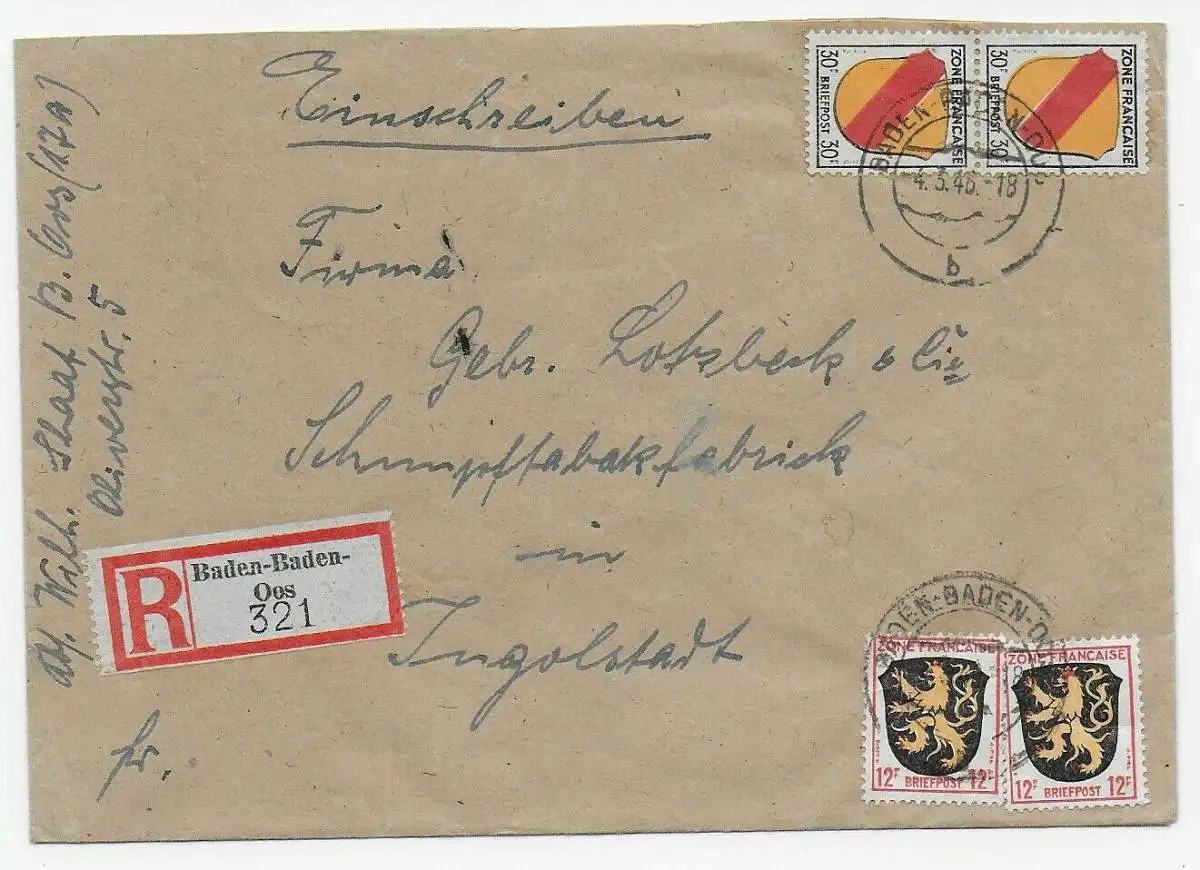 Einschreiben
Firma
Gebr. Lotzbeck & Cie
Schnupftabakfabrick
in
Ingolstadt
fr.
Abs. Wilh. Schaaf B. Oos (17a)
Oliverstr. 5
R
Baden-Baden-
Oos
321
ZONE FRANÇAISE
BRIEFPOST
30F
30F
ZONE FRANÇAISE
BRIEFPOST
30F
30F
BADEN-BADEN-OOS
4.3.46.-18
b
BADEN-BADEN-OOS
18
ZONE FRANÇAISE
12F BRIEFPOST 12F
ZONE FRANÇAISE
12F BRIEFPOST 12F